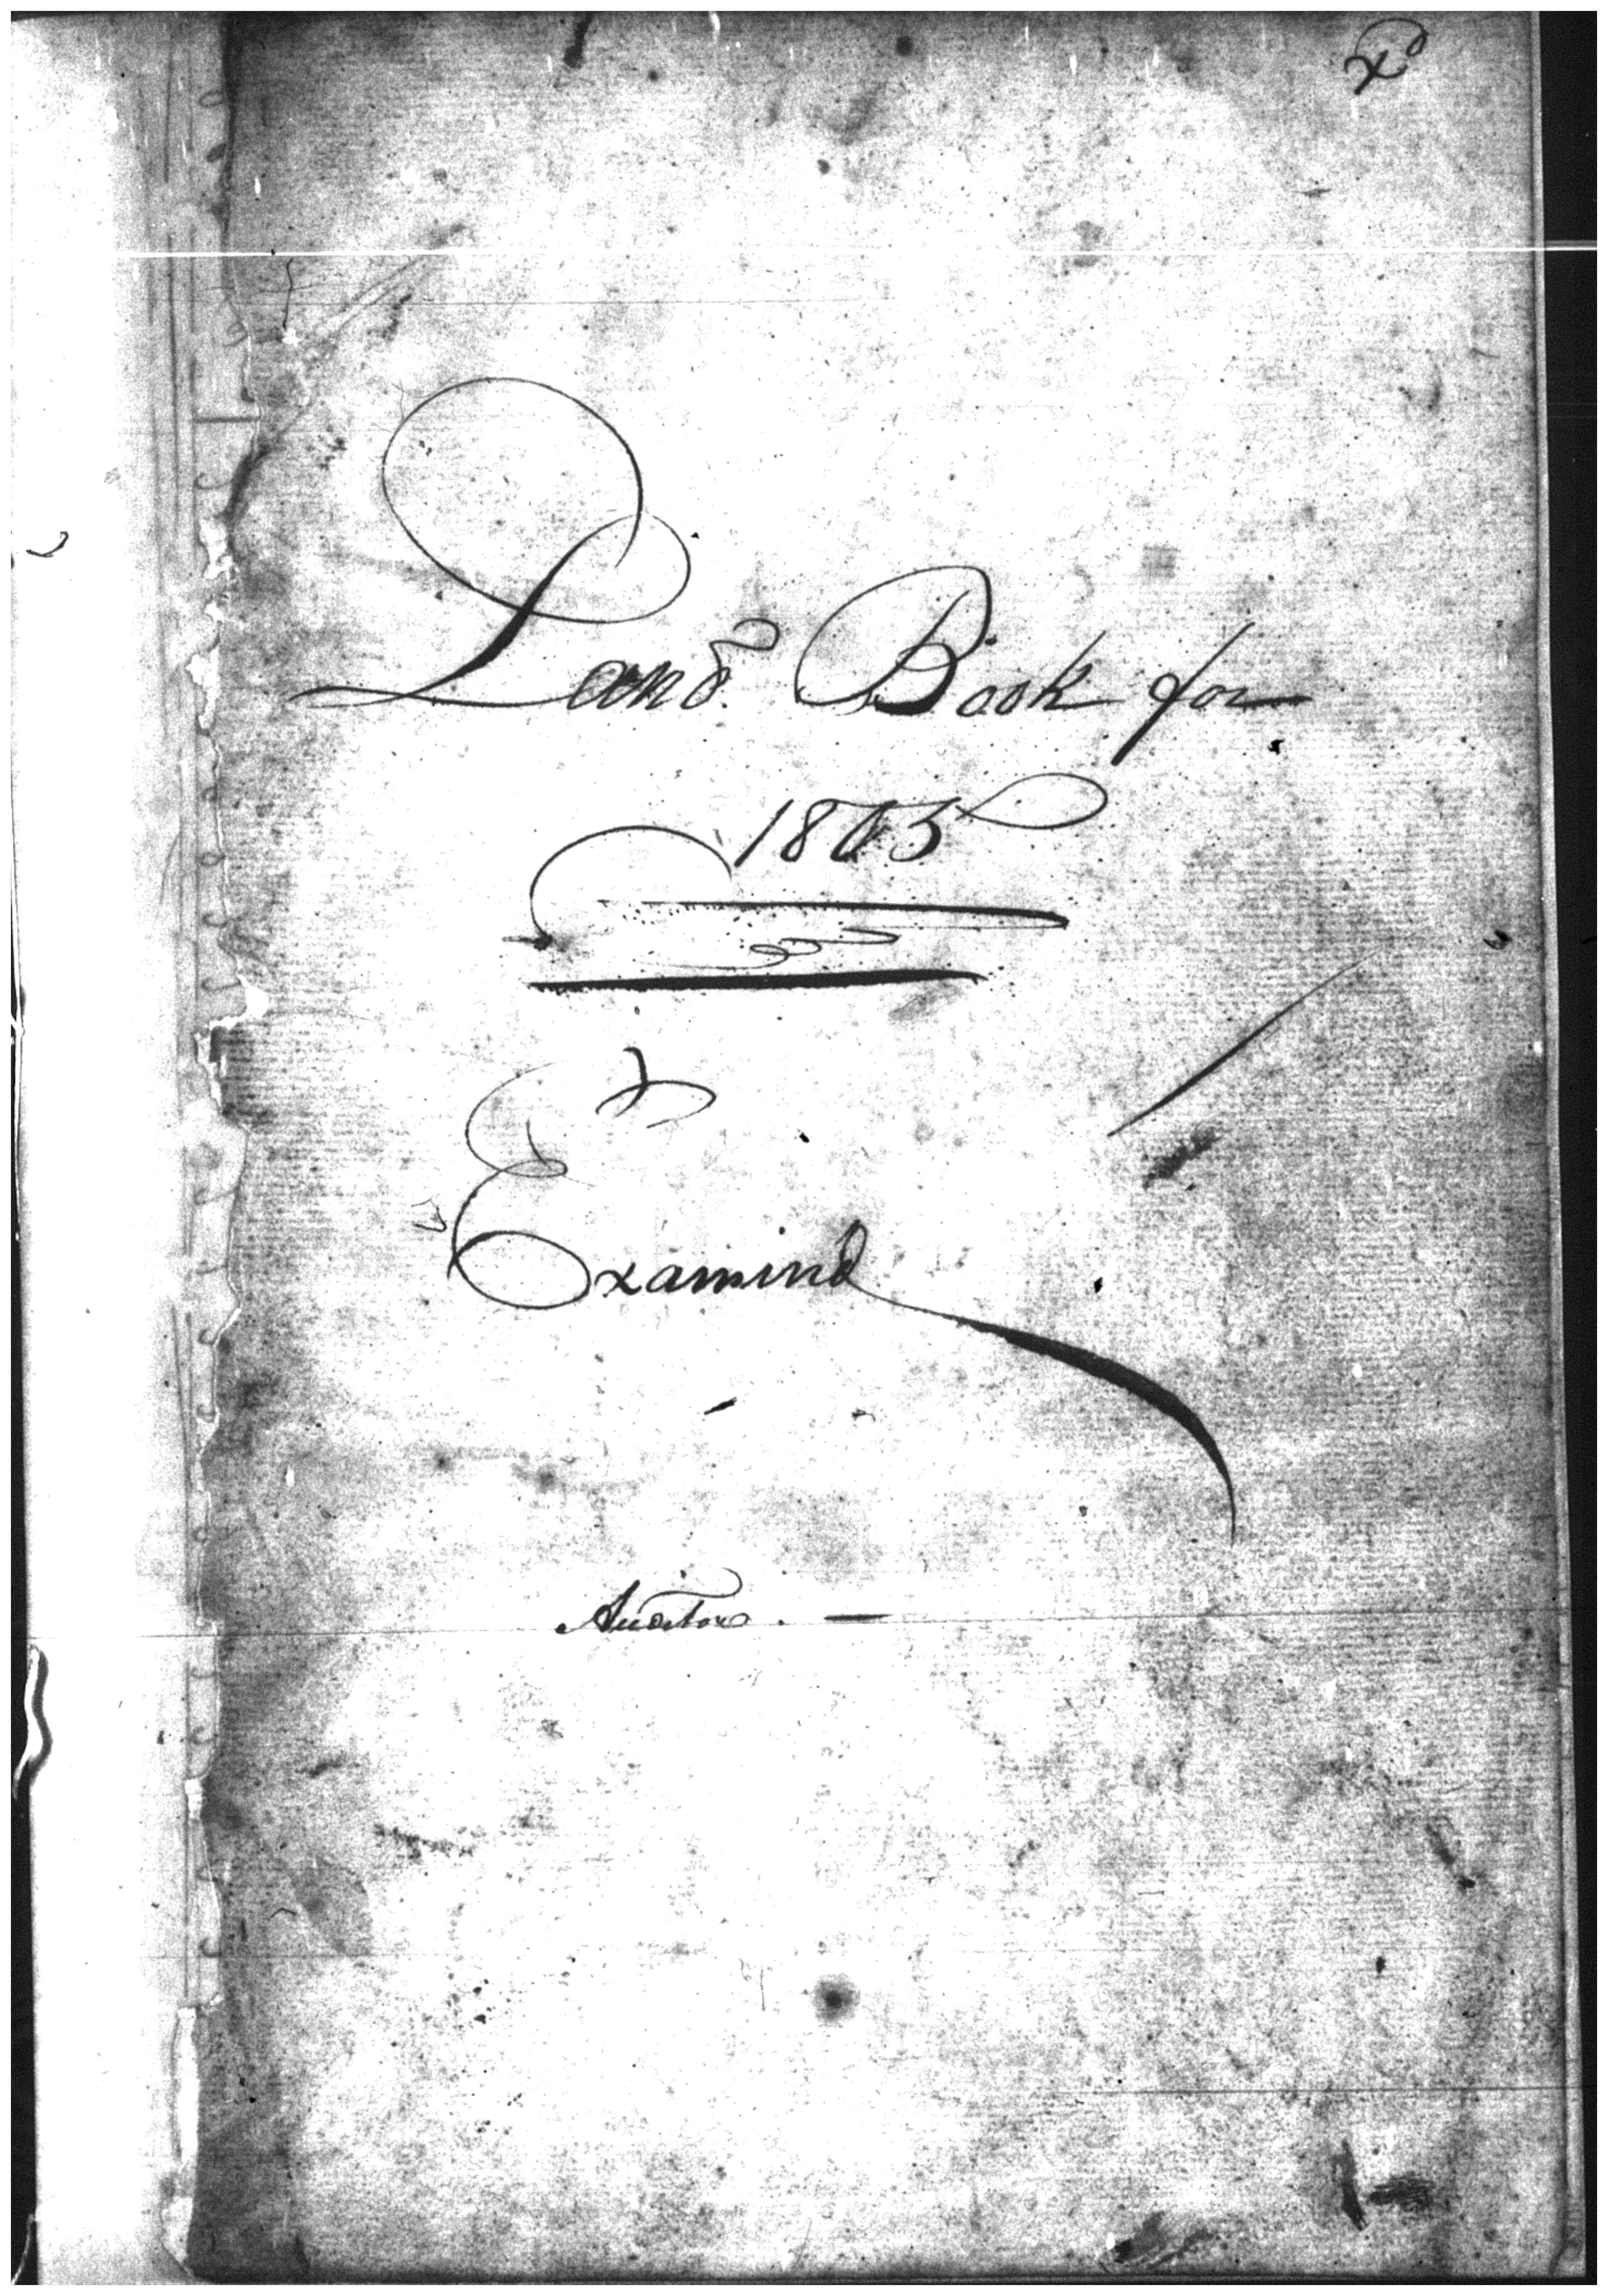 Xd
Land Book for
1803
Examind
Auditor. —